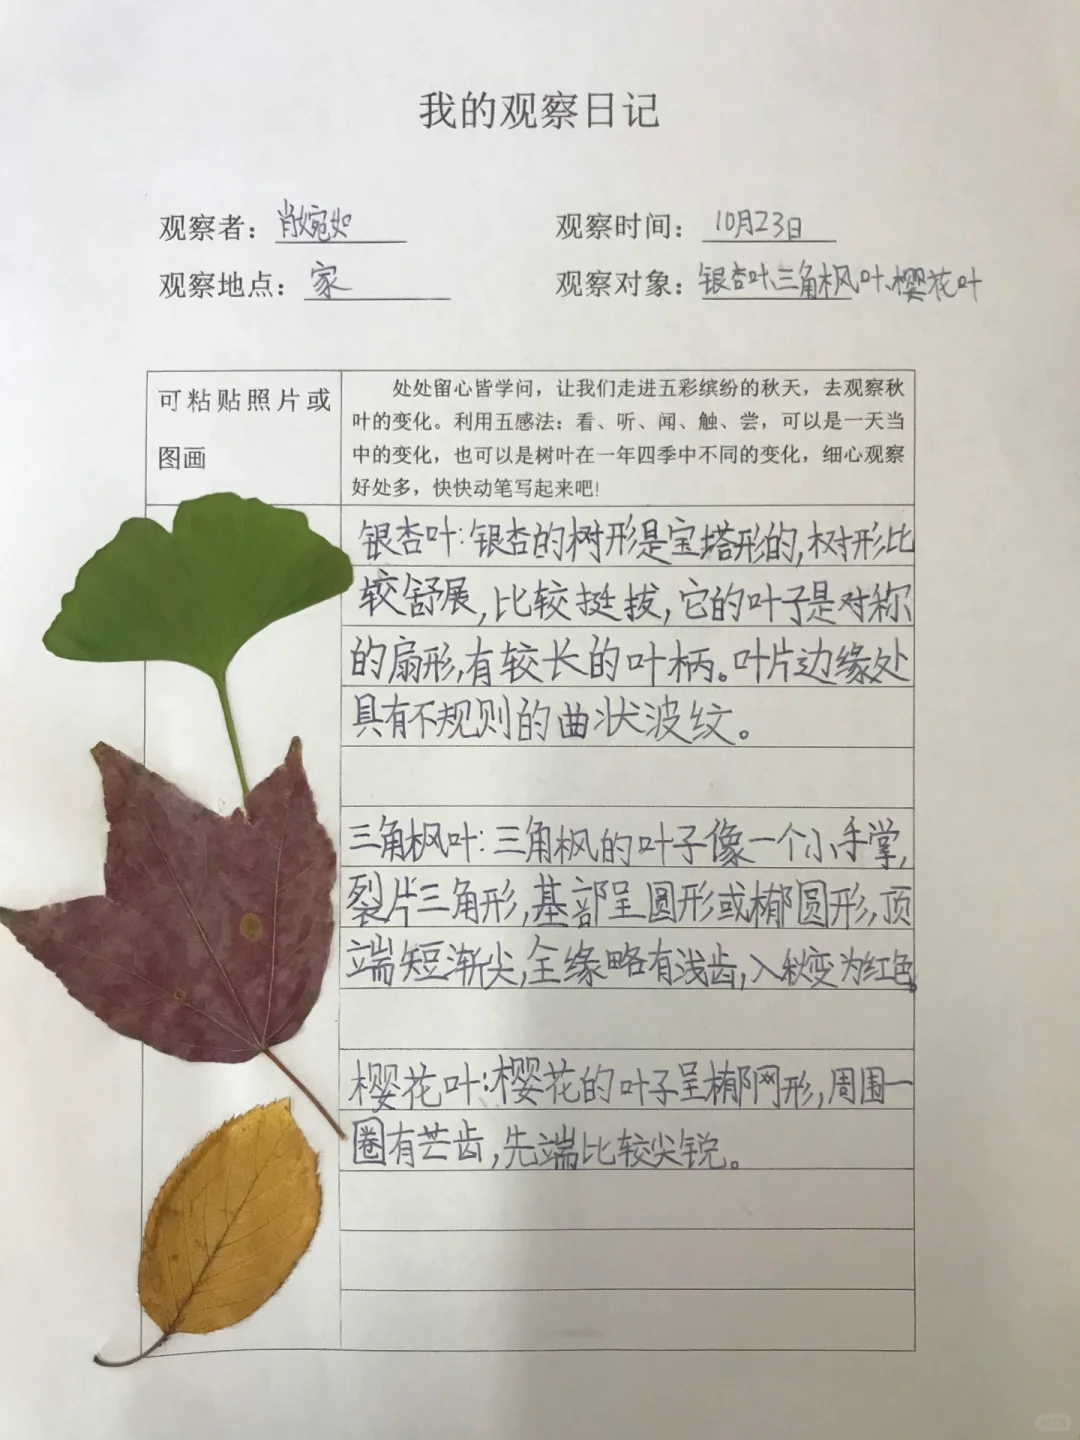 我的观察日记
观察者：肖婉如 观察时间：10月23日
观察地点：家 观察对象：银杏叶、三角枫叶、樱花叶
可粘贴照片或
图画
处处留心皆学问，让我们走进五彩缤纷的秋天，去观察秋
叶的变化。利用五感法：看、听、闻、触、尝，可以是一天当
中的变化，也可以是树叶在一年四季中不同的变化，细心观察
好处多，快快动笔写起来吧！
银杏叶：银杏的树形是宝塔形的，树形比
较舒展，比较挺拔，它的叶子是对称
的扇形，有较长的叶柄。叶片边缘处
具有不规则的曲状波纹。
三角枫叶：三角枫的叶子像一个小手掌，
裂片三角形，基部呈圆形或椭圆形，顶
端短渐尖，全缘略有浅齿，入秋变为红色。
樱花叶：樱花的叶子呈椭网形，周围一
圈有芒齿，先端比较尖锐。